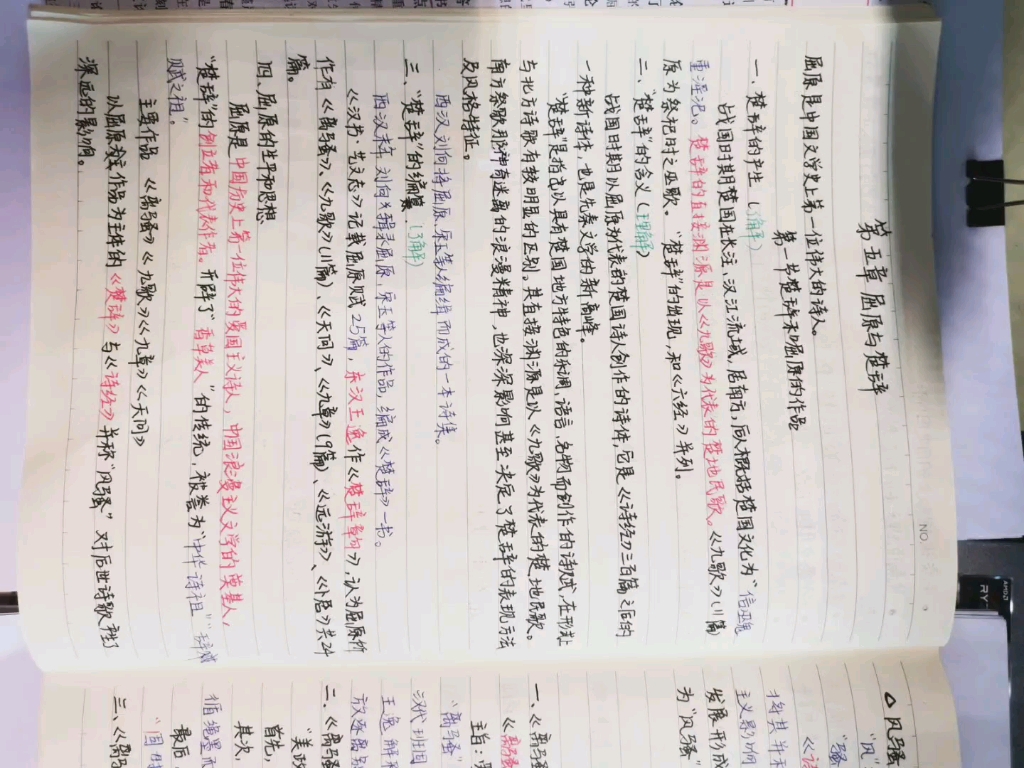 第五章 屈原与楚辞
第一节 楚辞和屈原的作品
屈原是中国文学史上第一位伟大的诗人。
一、楚辞的产生(了解)
战国时期楚国在长江、汉江流域,居南方,后人概括楚国文化为“信巫鬼
重淫祀。楚辞的直接渊源是以《九歌》为代表的楚地民歌。《九歌》(11篇)
原为祭祀时之巫歌。“楚辞”的出现,和《六经》并列。
二、“楚辞”的含义(理解)
战国时期以屈原为代表的楚国诗人创作的诗体,它是《诗经》三百篇之后的
一种新诗体,也是先秦文学的新高峰。
“楚辞”是指以具有楚国地方特色的乐调,语言,名物而创作的诗赋,在形式上
与北方诗歌有较明显的区别。其直接渊源是以《九歌》为代表的楚地民歌。
南方祭歌那神奇迷离的浪漫精神,也深深影响甚至决定了楚辞的表现方法
及风格特征。
西汉刘向将屈原、宋玉等人编辑而成的一本诗集。
三、“楚辞”的编纂(了解)
西汉末年,刘向辑录屈原,宋玉等人的作品,编成《楚辞》一书。
《汉书·艺文志》记载屈原赋25篇,东汉王逸作《楚辞章句》,认为屈原所
作有《离骚》、《九歌》(11篇)、《天问》、《九章》(9篇)、《远游》、《卜居》共24
篇。
四、屈原的生平和思想
屈原是中国历史上第一位伟大的爱国主义诗人,中国浪漫主义文学的奠基人,
“楚辞”的创立者和代表作者。开辟了“香草美人”的传统,被誉为“中华诗祖”“辞
赋之祖”
主要作品 《离骚》《九歌》《九章》《天问》
以屈原作品为主体的《楚辞》与《诗经》并称“风骚”对后世诗歌产生了
深远的影响。
NO.
AMD
RY
△风骚
“风”
“骚”
《诗
主义影响
发展形成
为“风骚
一、《离骚
《离骚
主旨:
“离骚
汉代班固
王逸解
放逐
二、《离骚
“美政
首先,
其次,
循绳墨而
最后,
三、《离